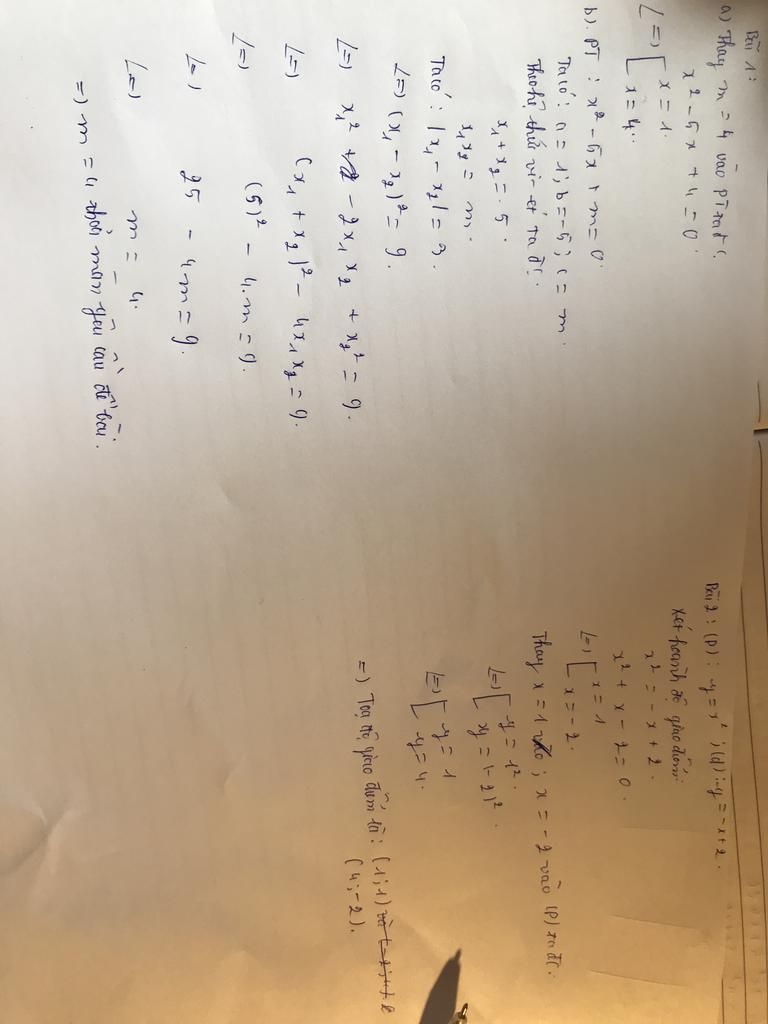 Bài 1:
a) Thay m = 4 vào PT ta đc:
x² - 5x + 4 = 0.
<=> [ x = 1.
x = 4.
b). PT : x² - 5x + m = 0.
Ta có: a = 1; b = -5; c = m.
Theo hệ thức vi-ét ta đc:
x₁ + x₂ = 5.
x₁x₂ = m.
Ta có: |x₁ - x₂| = 3.
<=> (x₁ - x₂)² = 9.
<=> x₁² - 2x₁x₂ + x₂² = 9.
<=> (x₁ + x₂)² - 4x₁x₂ = 9.
<=> (5)² - 4.m = 9.
<=> 25 - 4m = 9.
<=> m = 4.
=> m = 4 thỏa mãn yêu cầu đề bài.
Bài 2: (P): y = x²; (d): y = -x + 2.
Xét hoành độ giao điểm:
x² = -x + 2.
x² + x - 2 = 0.
<=> [ x = 1
x = -2.
Thay x = 1 ; x = -2 vào (P) ta đc:
<=> [ y = 1².
y = (-2)².
<=> [ y = 1
y = 4.
=> Toạ độ giao điểm là: (1;1) và (-2;4)
(4;-2).